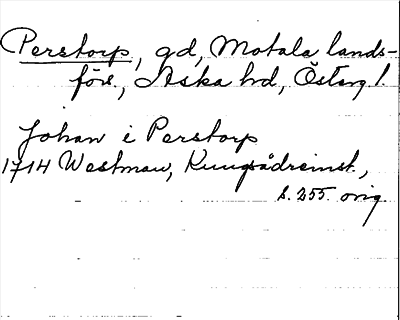 Perstorp, gd, Motala lands-
förs., Aska hd, Österg l.
Johan i Perstorp
1714 Westman, Kungsådreinst.,
s. 255. orig.